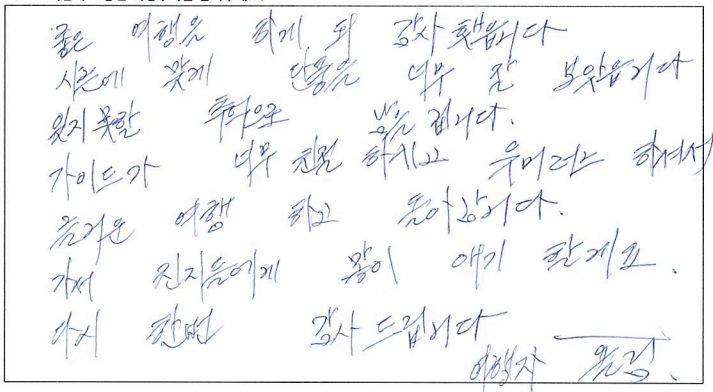 좋은 여행을 하게 되 감사 햇읍니다
시즌에 맞게 단풍을 너무 잘 보앗읍니다
잊지못할 추억으로 남을 겁니다.
가이드가 너무 친절 하시고 유머러스 하셔서
즐거운 여행 하고 돌아갑니다.
가서 친지들에게 많이 얘기 할게요.
다시 한번 감사 드립니다
여행자 올림.